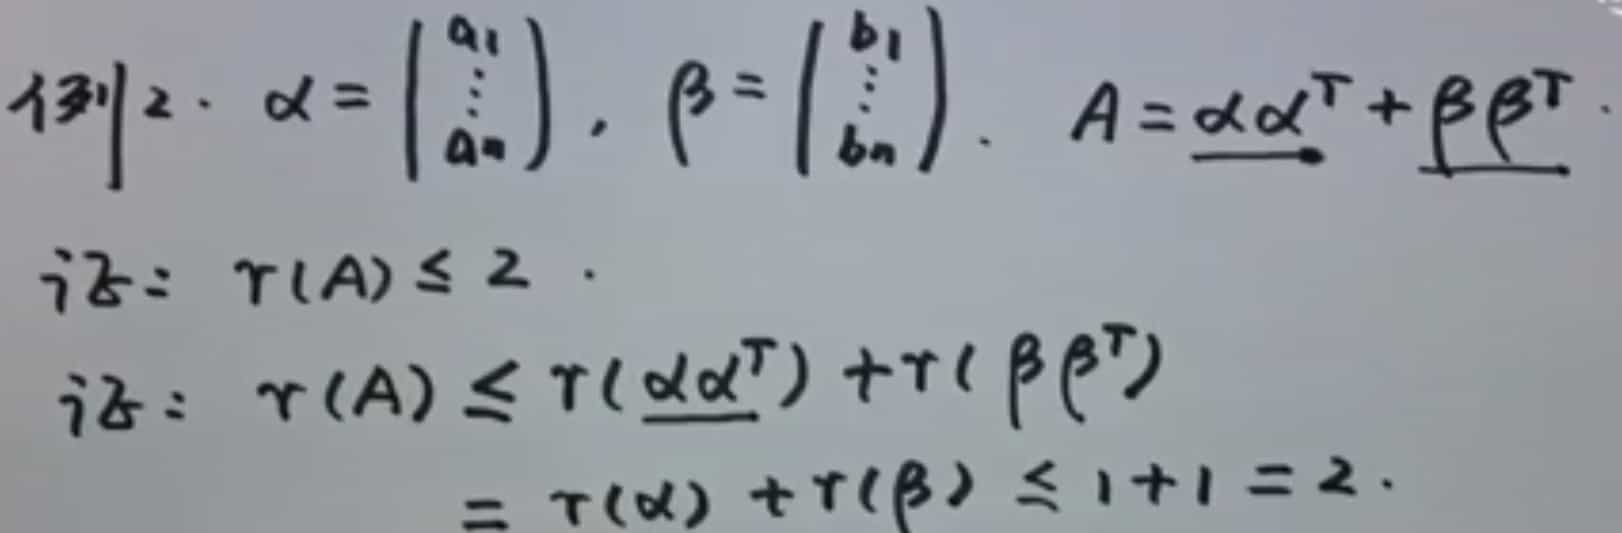 例2. α = (a₁ ⋮ aₙ), β = (b₁ ⋮ bₙ). A = ααᵀ + ββᵀ.
证: r(A) ≤ 2.
证: r(A) ≤ r(ααᵀ) + r(ββᵀ)
= r(α) + r(β) ≤ 1+1 = 2.